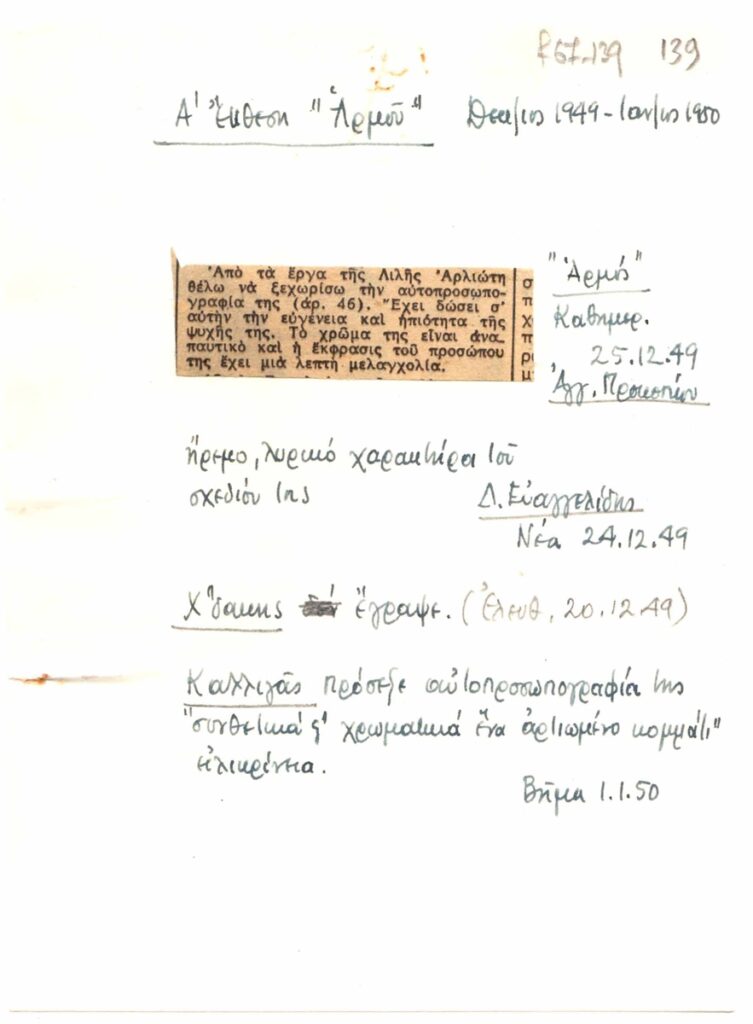 F67-139 139
Α' Ἔκθεση "Ἁρμοῦ" Δεκ/ιος 1949 - Ιαν/ιος 1950
Ἀπὸ τὰ ἔργα τῆς Λιλῆς Ἀρλιώτη
θέλω νὰ ξεχωρίσω τὴν αὐτοπροσωπο-
γραφία της (ἀρ. 46). Ἔχει δώσει σ'
αὐτὴν τὴν εὐγένεια καὶ ἠπιότητα τῆς
ψυχῆς της. Τὸ χρῶμα της εἶναι ἀνα
παυτικὸ καὶ ἡ ἔκφρασις τοῦ προσώπου
της ἔχει μιὰ λεπτὴ μελαγχολία.
"Ἁρμός"
Καθημερ.
25.12.49
Ἀγγ. Προκοπίου
ἤρεμο, λυρικό χαρακτήρα τοῦ
σχεδίου της
Δ. Εὐαγγελίδης
Νέα 24.12.49
ἔγραψε. (Ἐλευθ, 20.12.49)
Καλλιγᾶς πρόσεξε αὐτοπροσωπογραφία της
"συνθετικά ϛ' χρωματικά ἕνα ἀρτιωμένο κομμάτι"
εἰλικρίνεια.
Βῆμα 1.1.50